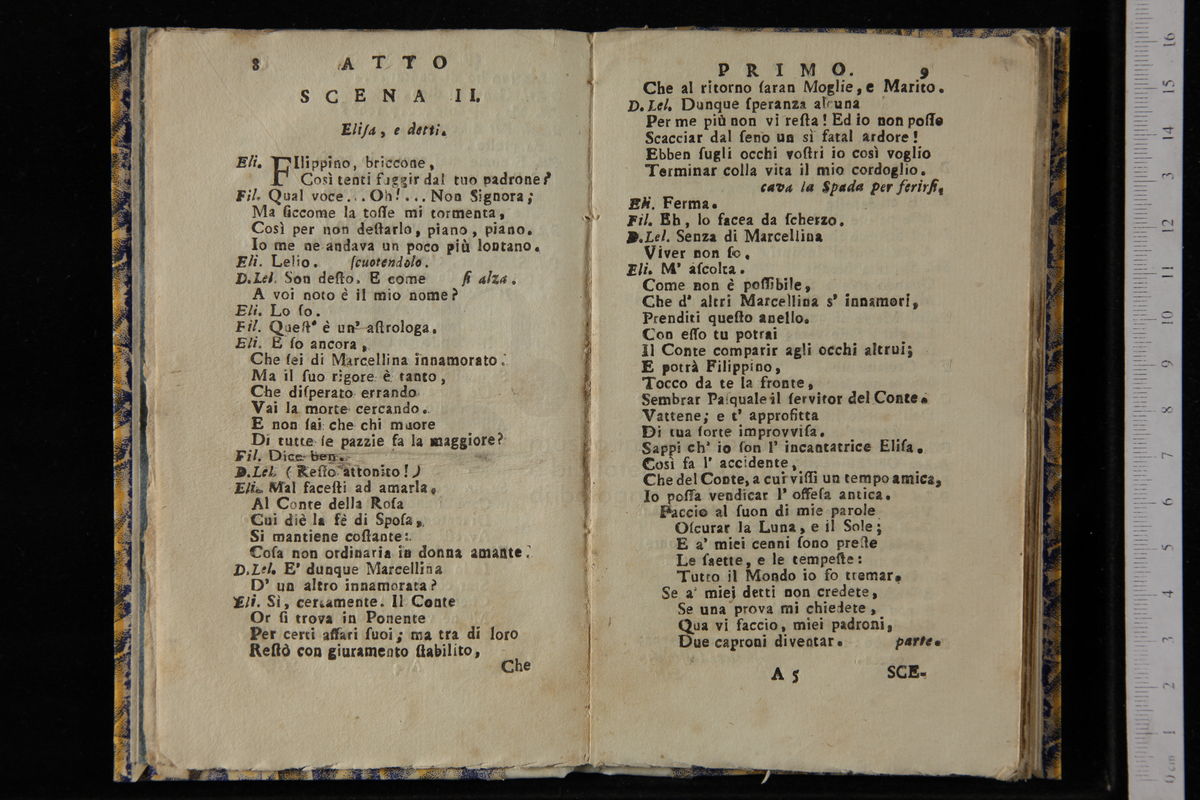 8 ATTO
SCENA II.
Eliſa, e detti.
Eli. FIlippino, briccone,
Così tenti fuggir dal tuo padrone?
Fil. Qual voce... Oh!... Non Signora;
Ma ſiccome la toſſe mi tormenta,
Così per non deſtarlo, piano, piano.
Io me ne andava un poco più lontano.
Eli. Lelio. ſcuotendolo.
D.Lel. Son deſto. E come ſi alza.
A voi noto è il mio nome?
Eli. Lo ſo.
Fil. Queſt' è un' aſtrologa.
Eli. E ſo ancora,
Che ſei di Marcellina innamorato.
Ma il ſuo rigore è tanto,
Che diſperato errando
Vai la morte cercando.
E non ſai che chi muore
Di tutte le pazzie fa la maggiore?
Fil. Dice ben.
D.Lel. (Reſto attonito!)
Eli. Mal faceſti ad amarla,
Al Conte della Roſa
Cui diè la fè di Spoſa,
Si mantiene coſtante:
Coſa non ordinaria in donna amante.
D.Lel. E' dunque Marcellina
D' un altro innamorata?
Eli. Sì, certamente. Il Conte
Or ſi trova in Ponente
Per certi affari ſuoi; ma tra di loro
Reſtò con giuramento ſtabilito,
Che
PRIMO. 9
Che al ritorno ſaran Moglie, e Marito.
D.Lel. Dunque ſperanza alcuna
Per me più non vi reſta! Ed io non poſſo
Scacciar dal ſeno un sì fatal ardore!
Ebben ſugli occhi voſtri io così voglio
Terminar colla vita il mio cordoglio.
cava la Spada per ferirſi,
Eli. Ferma.
Fil. Eh, lo facea da ſcherzo.
D.Lel. Senza di Marcellina
Viver non ſo.
Eli. M' aſcolta.
Come non è poſſibile,
Che d' altri Marcellina s' innamori,
Prenditi queſto anello.
Con eſſo tu potrai
Il Conte comparir agli occhi altrui;
E potrà Filippino,
Tocco da te la fronte,
Sembrar Paſquale il ſervitor del Conte.
Vattene; e t' approfitta
Di tua ſorte improvviſa.
Sappi ch' io ſon l' incantatrice Eliſa.
Così fa l' accidente,
Che del Conte, a cui viſſi un tempo amica,
Io poſſa vendicar l' offeſa antica.
Faccio al ſuon di mie parole
Oſcurar la Luna, e il Sole;
E a' miei cenni ſono preſte
Le ſaette, e le tempeſte:
Tutto il Mondo io fo tremar.
Se a' miei detti non credete,
Se una prova mi chiedete,
Qua vi faccio, miei padroni,
Due caproni diventar. parte.
A 5 SCE-
16
15
14
13
12
11
10
9
8
7
6
5
4
3
2
1
0 cm